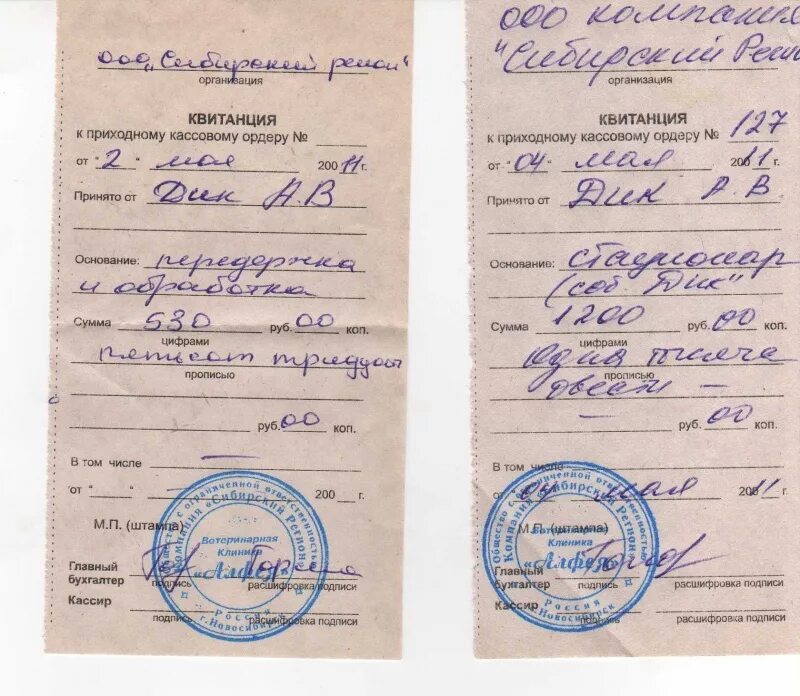 ООО „Сибирский регион"
организация
КВИТАНЦИЯ
к приходному кассовому ордеру №
от "2" мая 2011 г.
Принято от Дик А.В
Основание: передержка
и обработка
Сумма 530 руб. 00 коп.
цифрами
пятьсот тридцать
прописью
руб. 00 коп.
В том числе —
от " " — 200 г.
М.П. (штампа)
Главный
бухгалтер
подпись
расшифровка подписи
Кассир
подпись
расшифровка подписи
Общество с ограниченной ответственностью
Компания «Сибирский Регион»
Ветеринарная
Клиника
«Алфея»
Россия
г.Новосибирск
ООО компания
"Сибирский Реги
организация
КВИТАНЦИЯ
к приходному кассовому ордеру № 127
от "04" мая 2011 г.
Принято от Дик А.В
Основание: стационар
(соб. Дик"
Сумма 1200 руб. 00 коп.
цифрами
Одна тысяча
прописью
двести —
— руб. 00 коп.
В том числе
от "04" мая 2011 г.
М.П. (штампа)
Главный
бухгалтер
подпись
расшифровка подписи
Кассир
подпись
расшифровка подписи
Общество с ограниченной ответственностью
Компания «Сибирский Регион»
Ветеринарная
Клиника
«Алфея»
Россия
г.Новосибирск